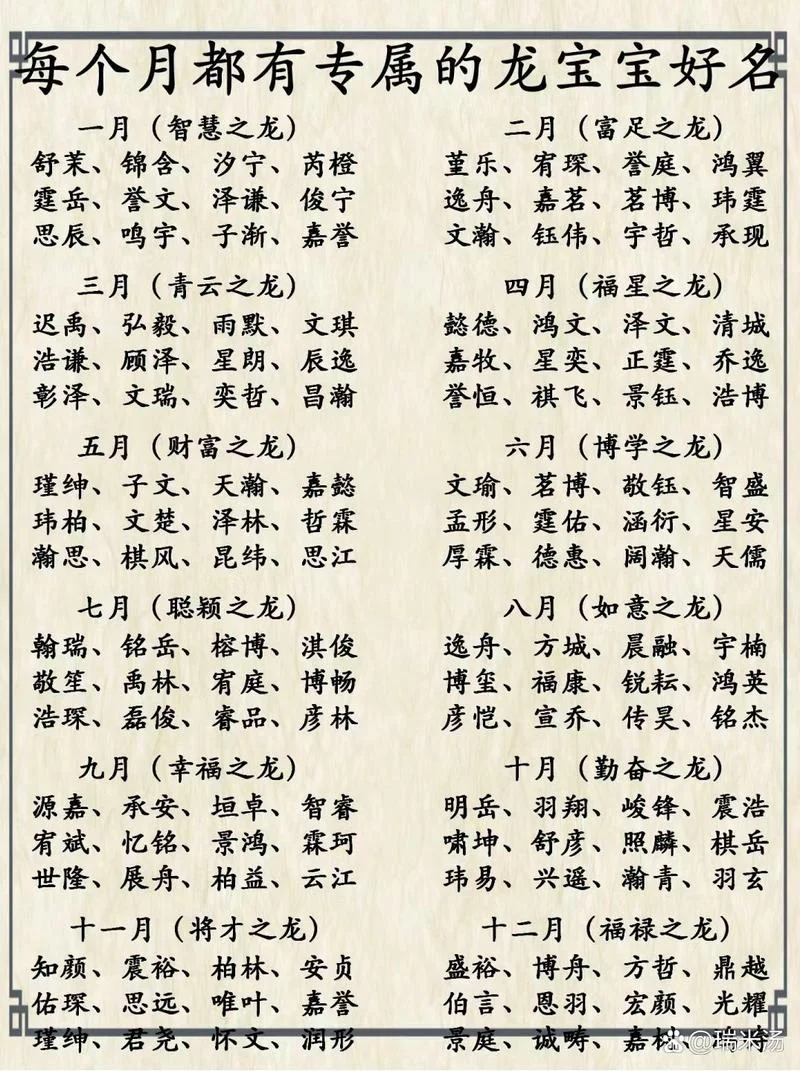 每个月都有专属的龙宝宝好名
一月（智慧之龙）
舒茉、锦含、汐宁、芮橙
霆岳、誉文、泽谦、俊宁
思辰、鸣宇、子渐、嘉誉
二月（富足之龙）
堇乐、宥琛、誉庭、鸿翼
逸舟、嘉茗、茗博、玮霆
文瀚、钰伟、宇哲、承现
三月（青云之龙）
迟禹、弘毅、雨默、文琪
浩谦、顾泽、星朗、辰逸
彰泽、文瑞、奕哲、昌瀚
四月（福星之龙）
懿德、鸿文、泽文、清城
嘉牧、星奕、正霆、乔逸
誉恒、祺飞、景钰、浩博
五月（财富之龙）
瑾绅、子文、天瀚、嘉懿
玮柏、文楚、泽林、哲霖
瀚思、棋风、昆纬、思江
六月（博学之龙）
文瑜、茗博、敬钰、智盛
孟形、霆佑、涵衍、星安
厚霖、德惠、阔瀚、天儒
七月（聪颖之龙）
翰瑞、铭岳、榕博、淇俊
敬笙、禹林、宥庭、博畅
浩琛、磊俊、睿品、彦林
八月（如意之龙）
逸舟、方城、晨融、宇楠
博玺、福康、锐耘、鸿英
彦恺、宣乔、传昊、铭杰
九月（幸福之龙）
源嘉、承安、垣卓、智睿
宥斌、忆铭、景鸿、霖珂
世隆、展舟、柏益、云江
十月（勤奋之龙）
明岳、羽翔、峻锋、震浩
啸坤、舒彦、照麟、棋岳
玮易、兴遥、瀚青、羽玄
十一月（将才之龙）
知颜、震裕、柏林、安贞
佑琛、思远、唯叶、嘉誉
瑾绅、君尧、怀文、润形
十二月（福禄之龙）
盛裕、博舟、方哲、鼎越
伯言、恩羽、宏颜、光耀
景庭、诚畴、嘉
@瑞米汤